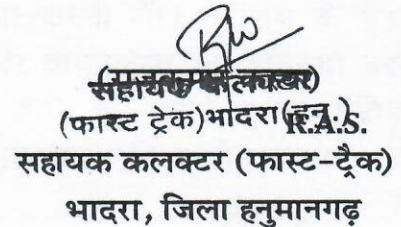 सहायक कलक्टर)
(फास्ट ट्रेक)भादरा(हनु.)
R.A.S.
सहायक कलक्टर (फास्ट-ट्रैक)
भादरा, जिला हनुमानगढ़